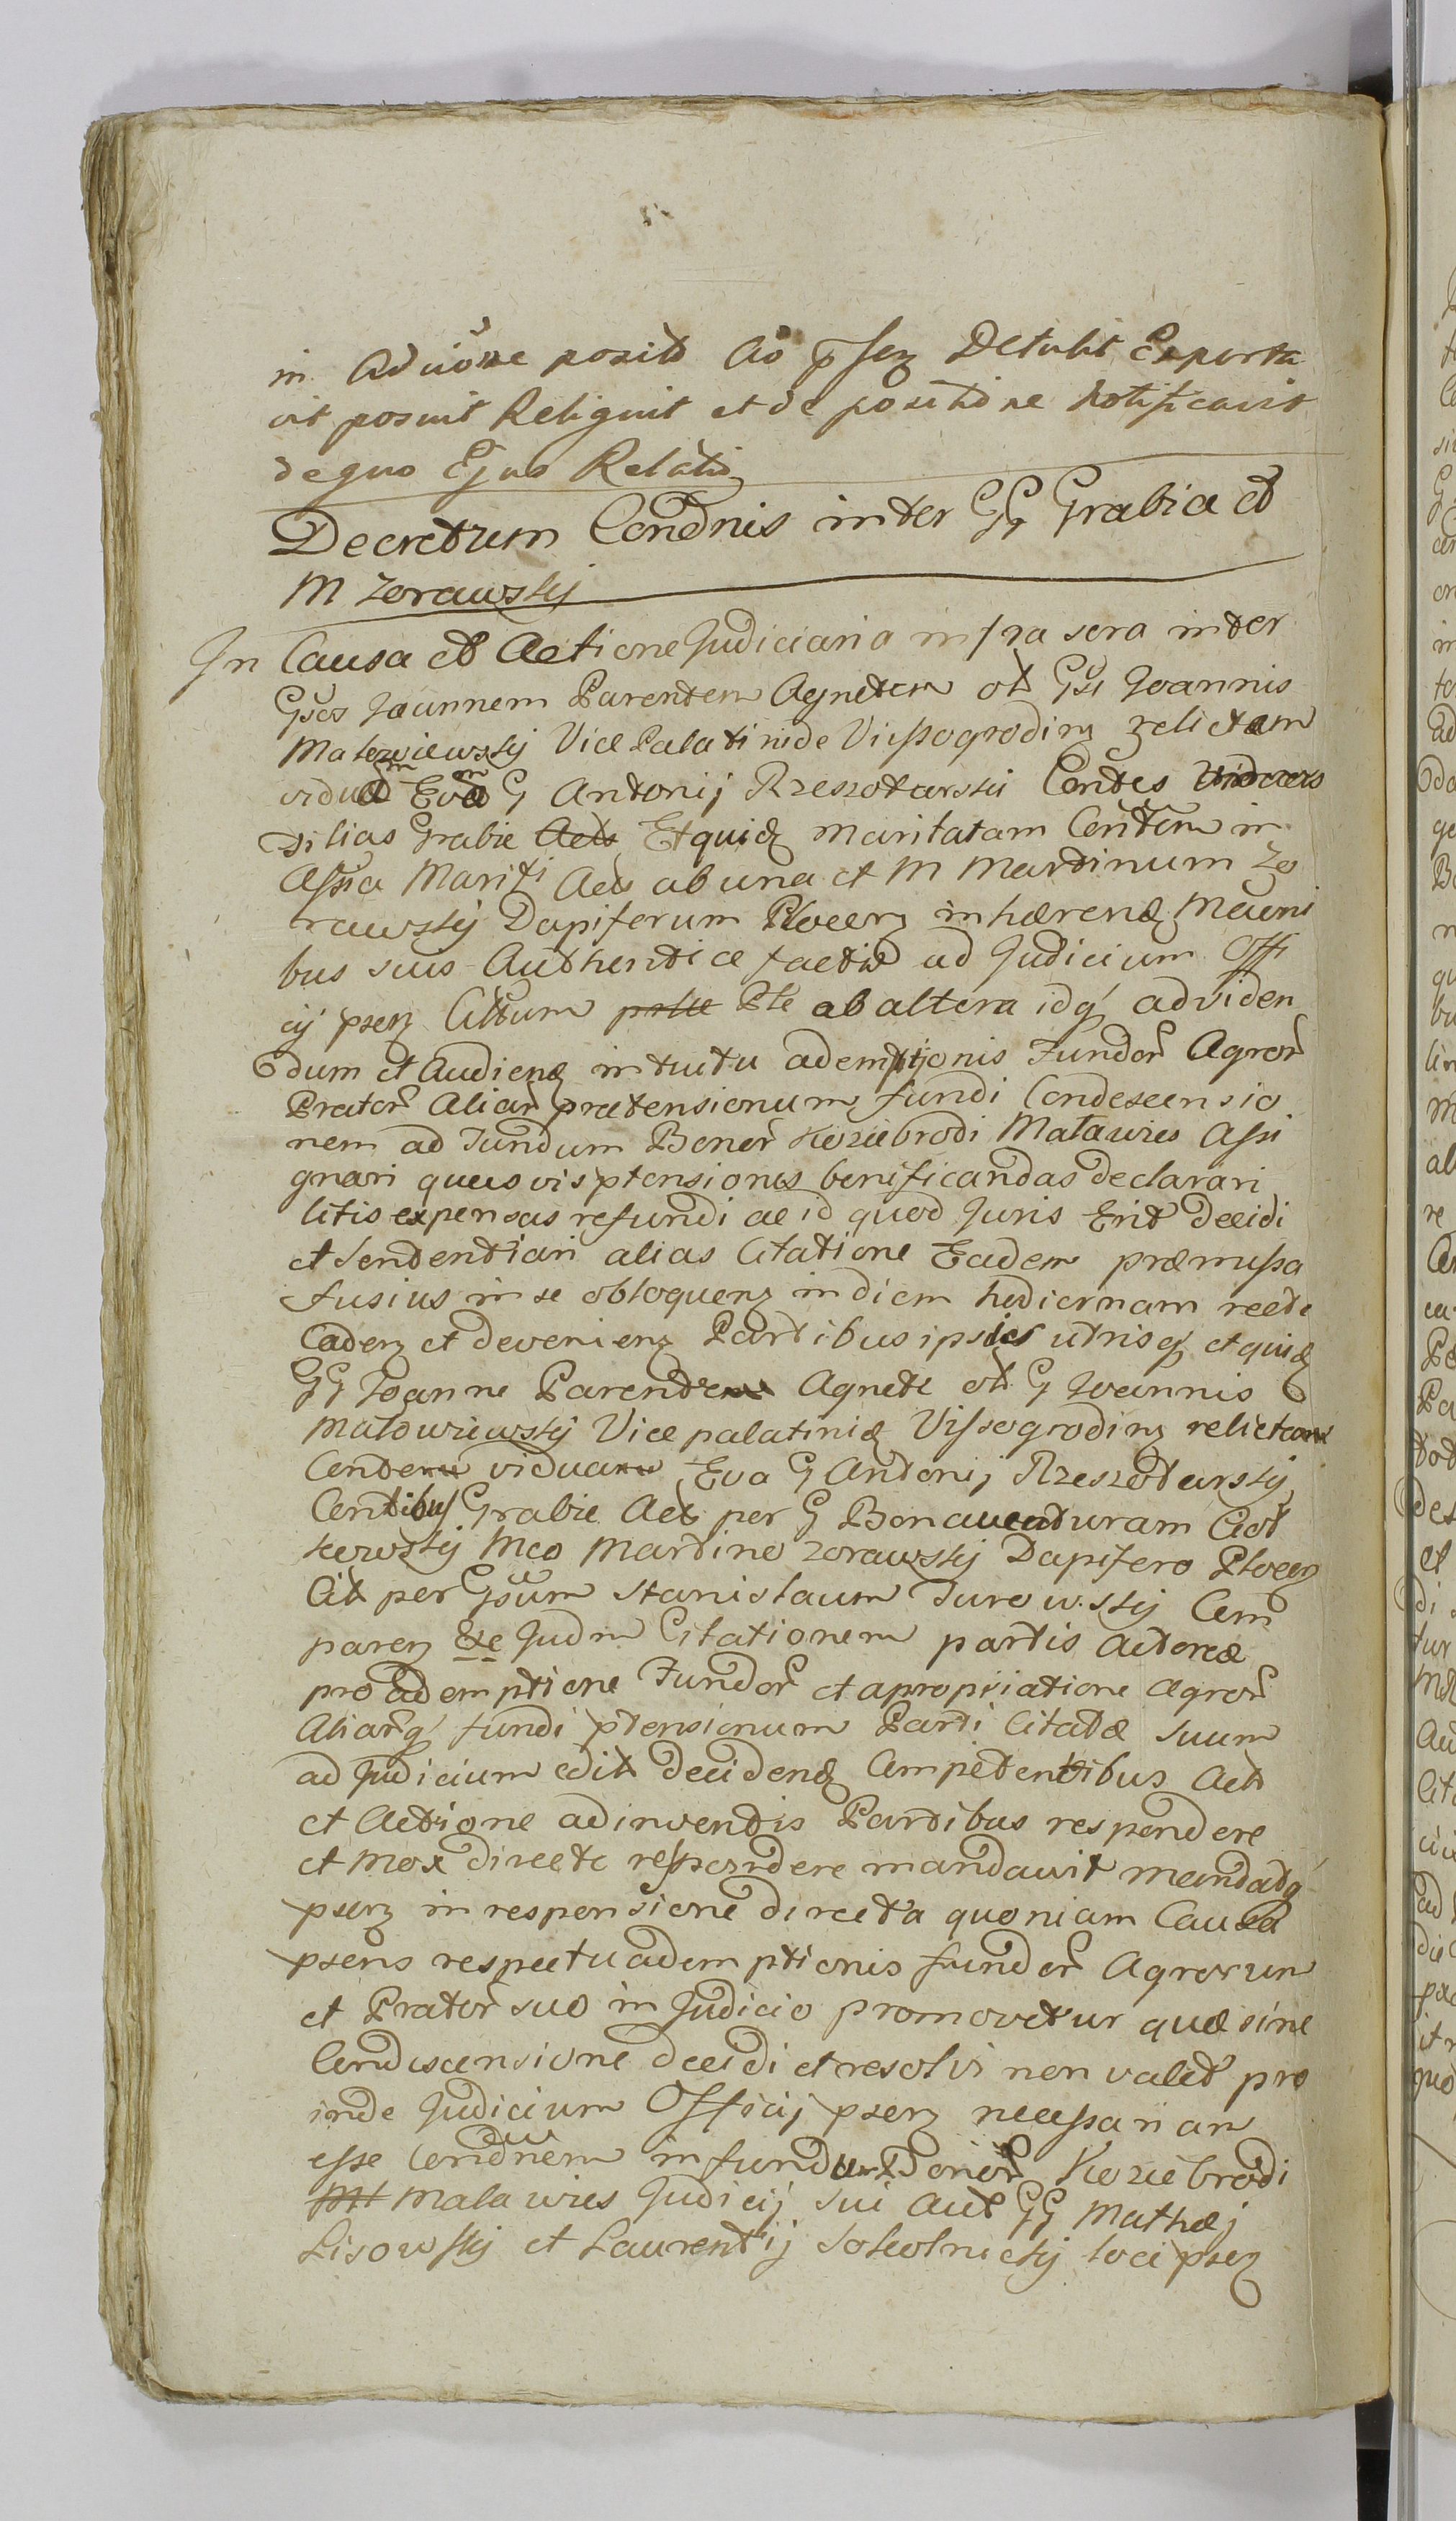 in Aduõne posito Ao psez Detulit Exporta
vit posuit Reliquit et de positione notificavit
de quo Ejus Relatio
Decretum Condnis inter GG Grabia et
M Zorawskij
In Causa et Actione Judiciaria infra scra inter
Gsos Joannem Parentem Agnetem olt Gsi Joannis
Malowiewskij Vice Palatini de Vissogrodinz relictam
viduam Evam G Antonij Rzeszotarski Contes viduas
Filias Grabie Acts Et quidz maritatam Contem in
Assia Mariti Acts ab una et M Martinum Zo
rawskij Dapiferum Plocenz inhærendz Mem̃ni
bus suis Authentice factis ad Judicium Offi
cij psenz Cittum pslte Ple ab altera idq advidен
dum et Audiendz intuitu ademptionis Fundor Agror
Prator Aliar prætensionum fundi Condescensio
nem ad Fundum Bonor Koziebrodi Malawies Assi
gnari quasvis ptensiones bonificandas declarari
litis expensas refundi ac id quod Juris Erit decidi
et Sententiari alias Citatione Eadem præmissa
fusius in se obloquenz in diem hodiernam recte
Cadenz et devenienz Partibus ipsis utrisq et quidz
GG Joanne Parentem Agnete olt G Joannis
Malowiewskij Vice palatinidz Vissogrodinz relictam
Contem viduam Eva G Antonij Rzeszotarskij
Contibus Grabie Acts per G Bonaventuram Ciot
kowskij Mco Martino Zorawskij Dapifero Plocenz
Cit per Gsum Stanislaum Turowskij Com
parenz Exe Judm Citationem partis Actoreæ
pro ademptione Fundor et apropriatione Agror
Aliarq fundi ptensionum Parti Citatæ suum
ad Judicium edit decidendz Competentibus Act
et Actione adinventis Partibus respondere
et mox directe respondere mandavit mandatq
psenz in responsione directa quoniam Causa
psens respectu ademptionis fundor Agrorum
et Prator suo in Judicio promovetur quæ sine
Condiscensione decidi et resolvi non valet pro
inde Judicium Officij psenz necessariam
esse Condnem in fundum Bonor Koziebrodi
Mt Malawies Judicij sui Aut GG Mathæj
Lisowskij et Laurentij Sokolnickij loci psenz